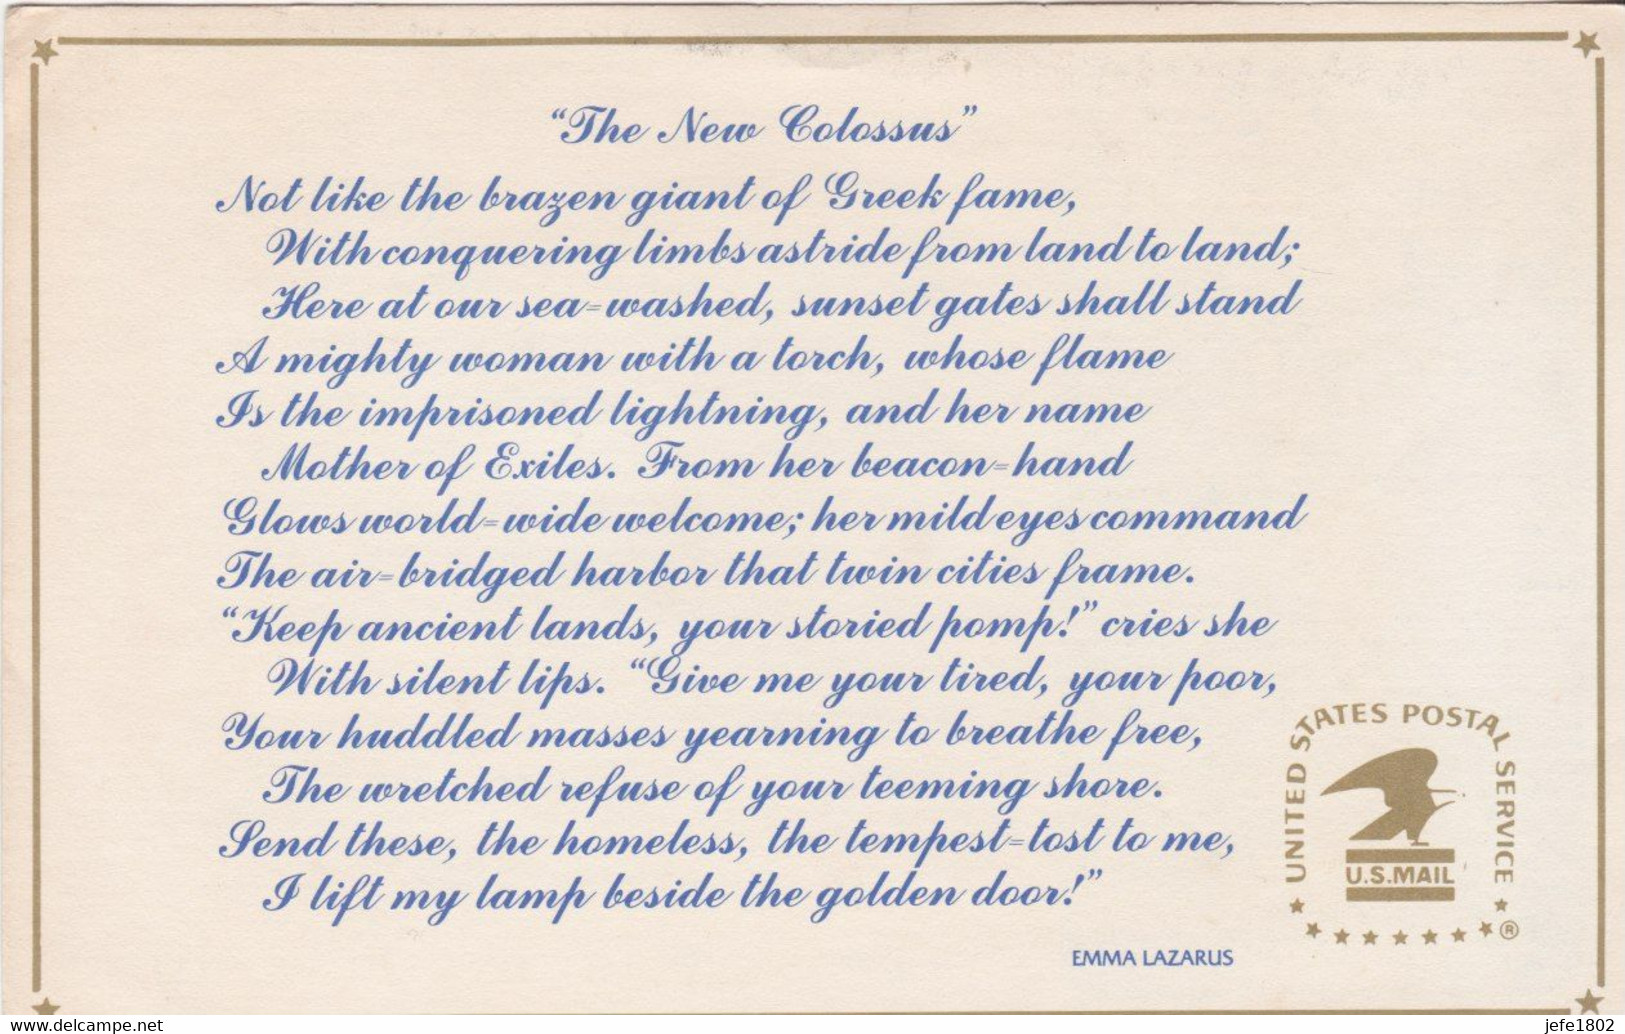 “The New Colossus”
Not like the brazen giant of Greek fame,
With conquering limbs astride from land to land;
Here at our sea=washed, sunset gates shall stand
A mighty woman with a torch, whose flame
Is the imprisoned lightning, and her name
Mother of Exiles. From her beacon=hand
Glows world=wide welcome; her mild eyes command
The air=bridged harbor that twin cities frame.
“Keep ancient lands, your storied pomp!” cries she
With silent lips. “Give me your tired, your poor,
Your huddled masses yearning to breathe free,
The wretched refuse of your teeming shore.
Send these, the homeless, the tempest=tost to me,
I lift my lamp beside the golden door!”
EMMA LAZARUS
UNITED STATES POSTAL SERVICE
U.S.MAIL
®
www.delcampe.net
jefe1802